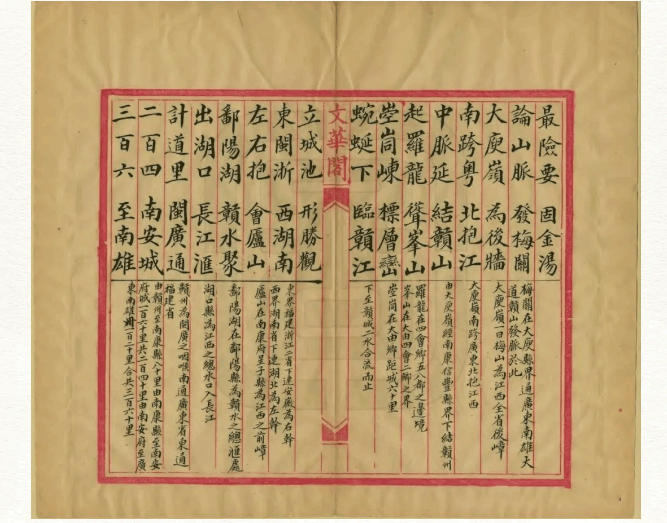 最險要 固金湯
論山脈 發梅關
梅關在大庾縣界通廣東南雄大
道贛山發脈於此
大庾嶺 為後牆
大庾嶺一曰梅山為江西全省後嶂
南跨粵 北抱江
大庾嶺南跨廣東北抱江西
中脈延 結贛山
由大庾嶺趨南康信豐縣界下結贛州
起羅龍 聳峯山
羅龍在四會鄉五八都之邊境
峯山在大由四會二鄉之界
崆峒崠 標層巒
崆峒在大由鄉距城六十里
蜿蜒下 臨贛江
下至贛城二水合流而止
文華閣
立城池 形勝觀
東閩浙 西湖南
東界福建浙江二省下連安徽為右幹
西界湖南省下連湖北為左幹
左右抱 會廬山
廬山在南康府星子縣為江西之前嶂
鄱陽湖 贛水聚
鄱陽湖在鄱陽縣為贛水之總滙處
出湖口 長江滙
湖口縣為江西之總水口入長江
計道里 閩廣通
贛州為閩廣之咽喉南通廣東省東通
福建省
二百四 南安城
由贛州至南康縣八十里由南康縣至南安
府城一百六十里共二百四十里由南安府至廣
三百六 至南雄
東南雄州一百二十里合共三百六十里